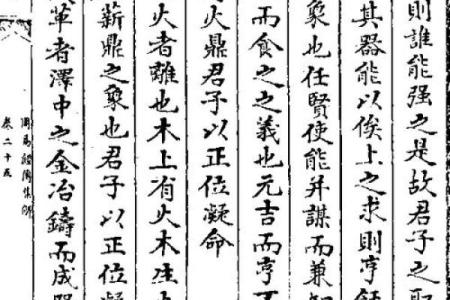 則誰能强之是故君子之
其器能以俟上之求則亨
象也任賢使能并謀而兼知
而食之之義也元吉而亨
火鼎君子以正位凝命
火者離也木上有火木生
薪鼎之象也君子以正位凝
革者澤中之金冶鑄而成
周易經傳集解
卷二十五